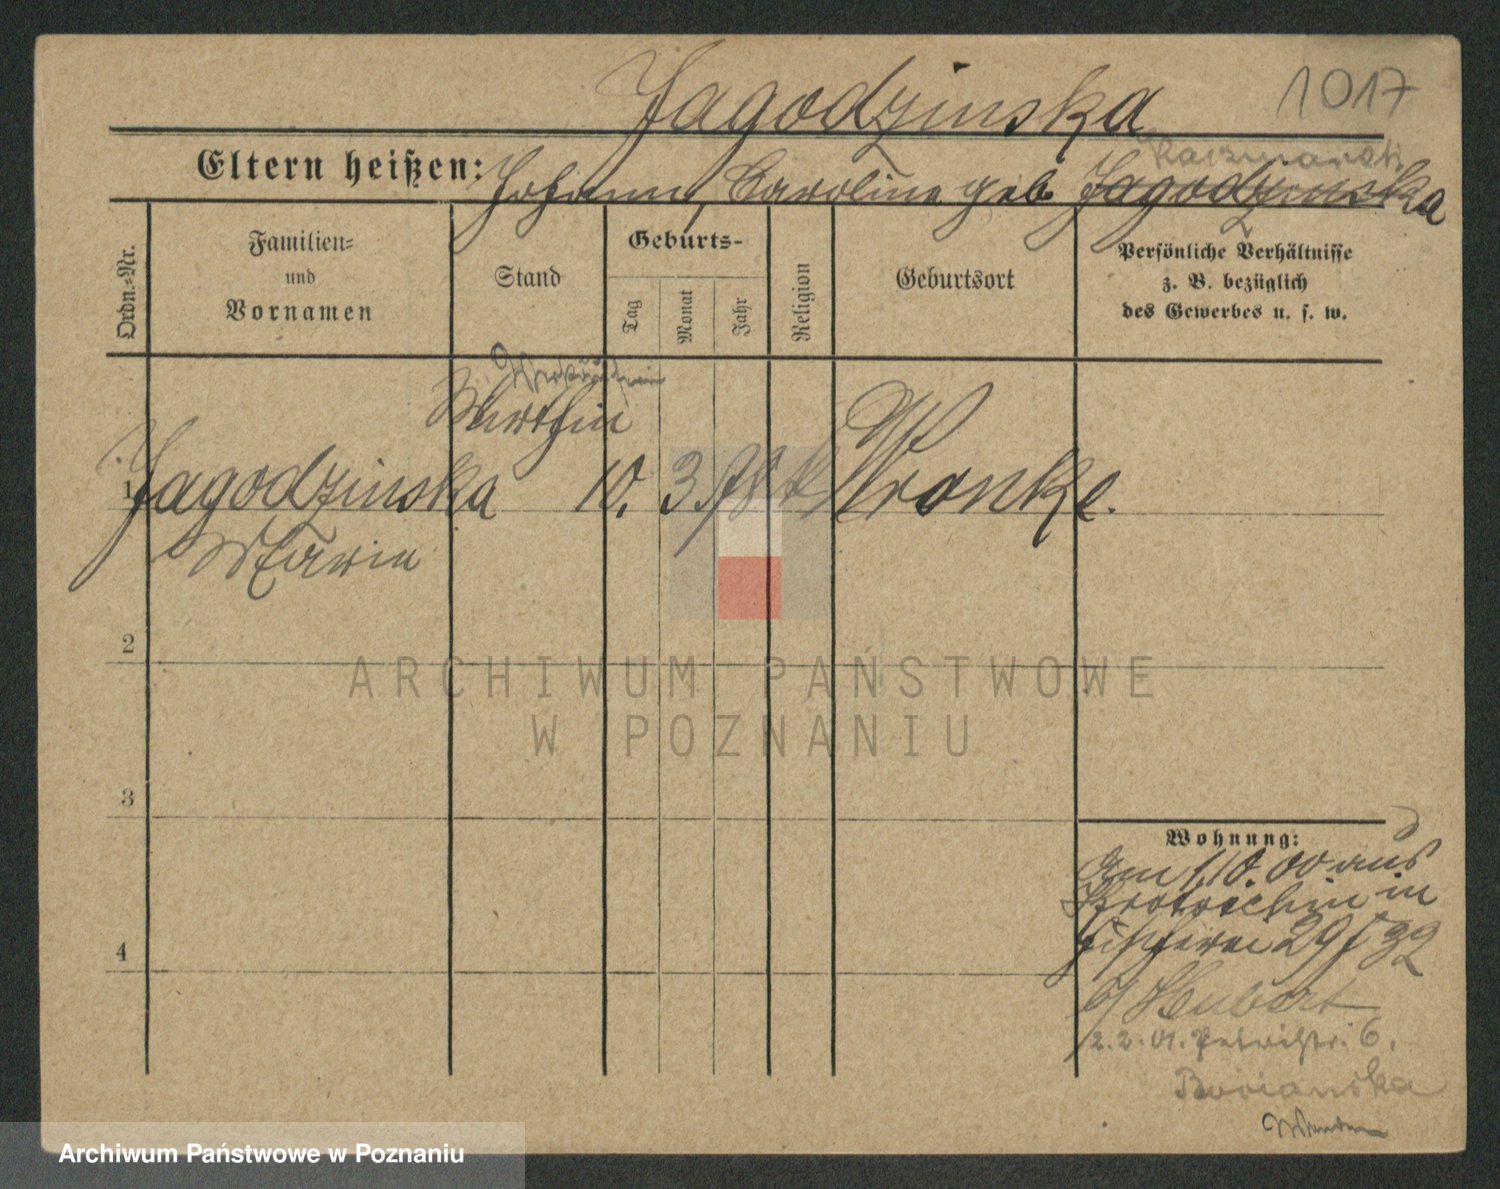 Jagodzinska
1017
Eltern heißen: Johann, Caroline geb. Jagodzinska
Kaczmarek
Ordn.=Nr.
Familien=
und
Vornamen
Stand
Geburts-
Tag
Monat
Jahr
Religion
Geburtsort
Persönliche Verhältnisse
z. B. bezüglich
des Gewerbes u. s. w.
Wirthin
1 Jagodzinska 10. 3. 78 k Wronke.
Marie
2
ARCHIWUM PAŃSTWOWE
W POZNANIU
3
Wohnung:
Am 1.10.00 aus
Krotoschin in
Fischerei 29/32
b/ Hubert
2.2.01. Petristr. 6.
4
Archiwum Państwowe w Poznaniu